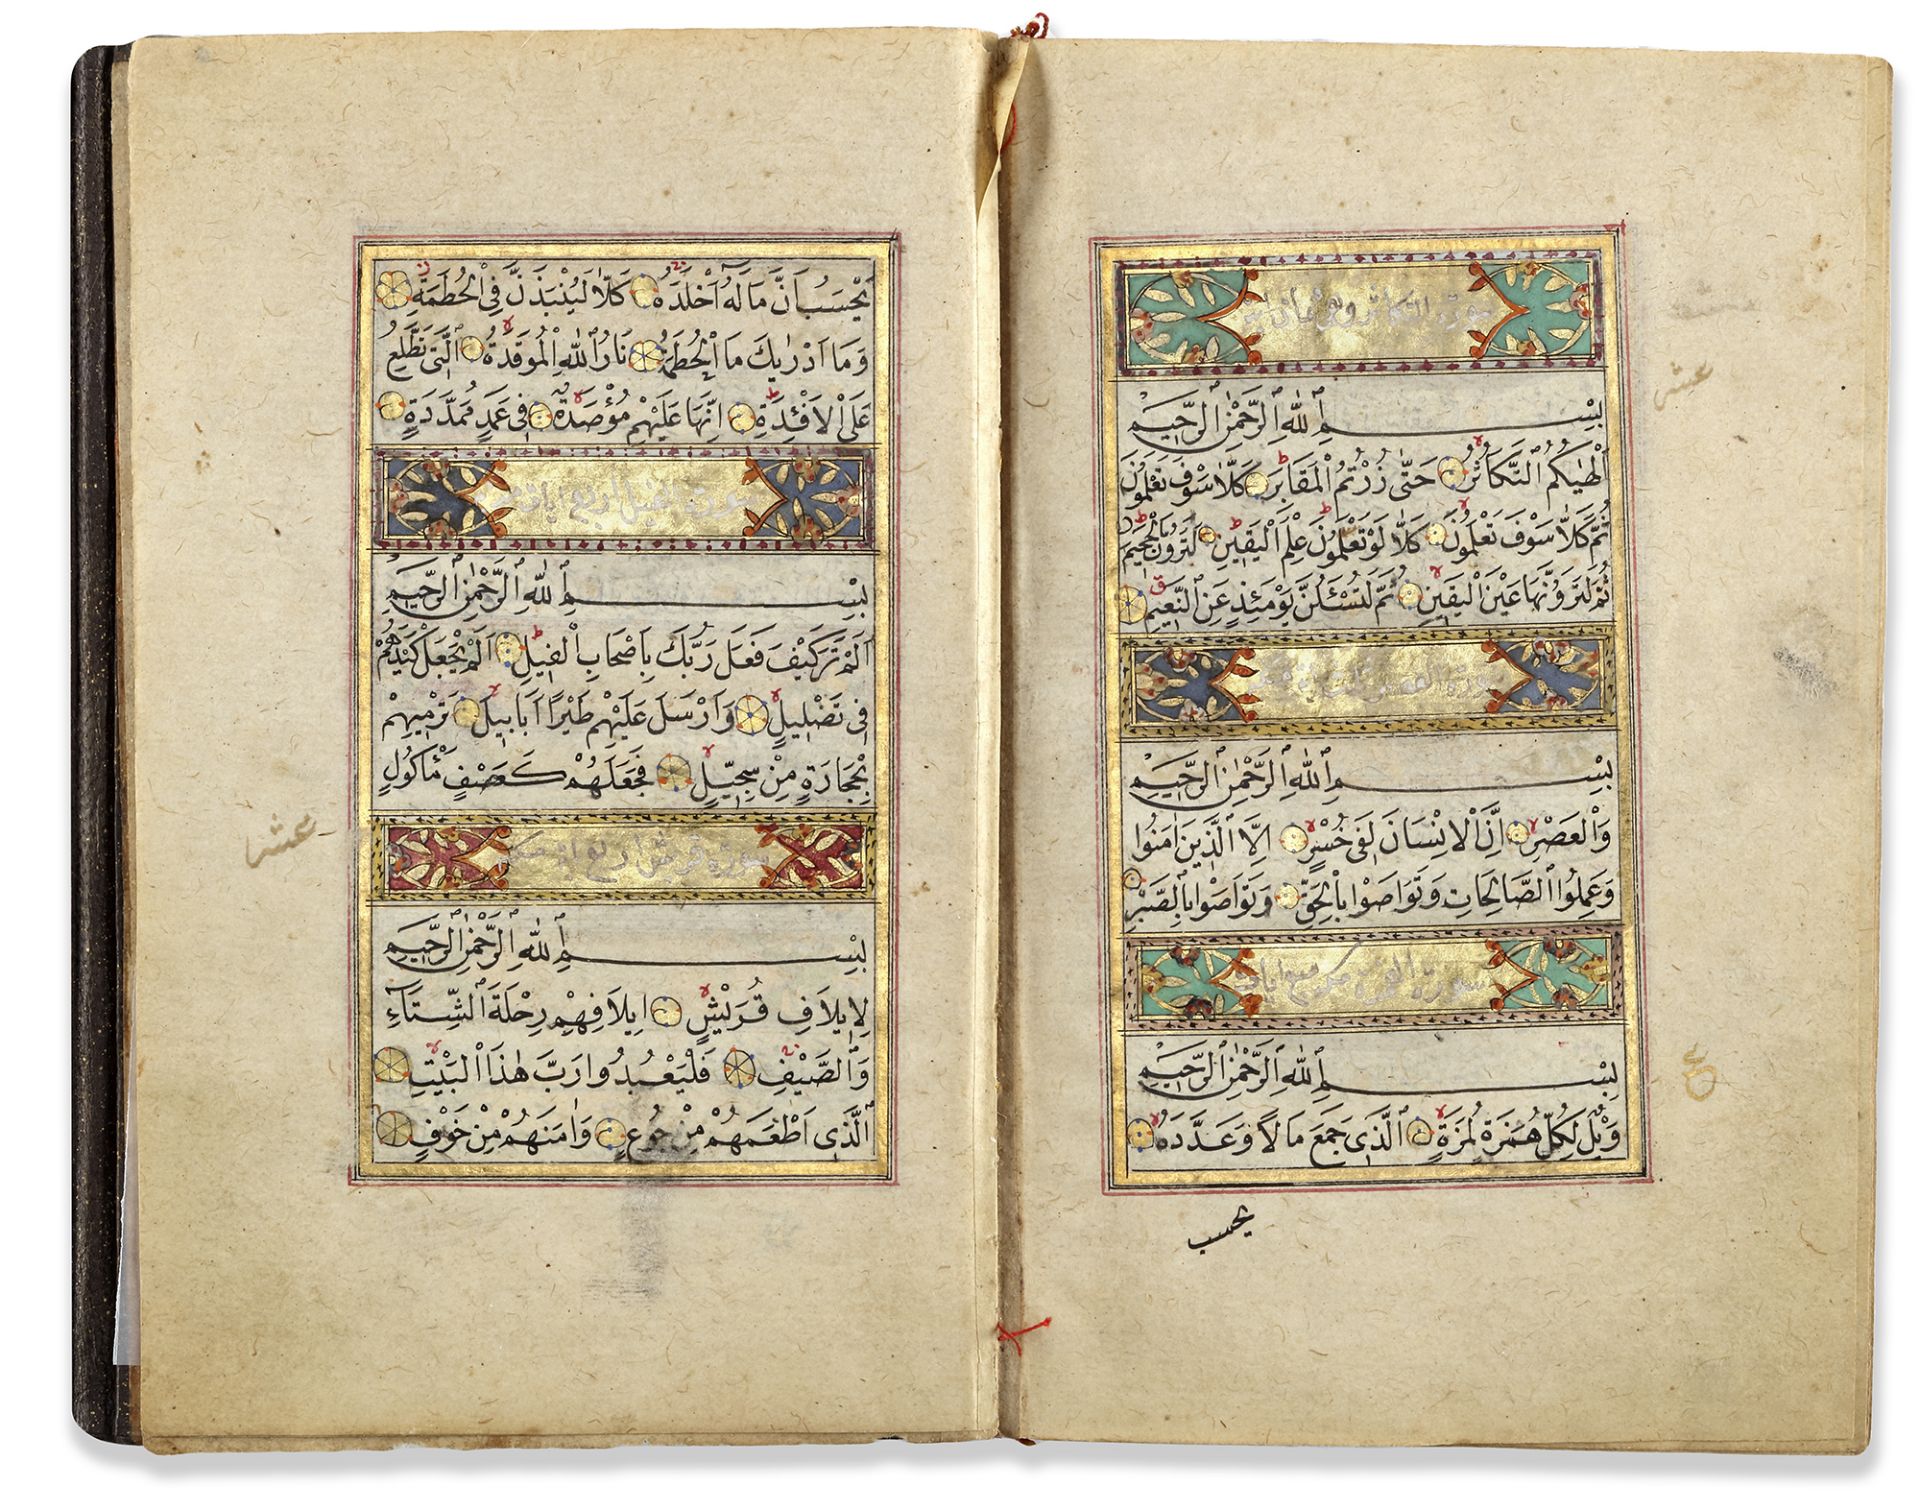 سورة التكاثر وهى ثمان ايات
بِسْمِ اللهِ الرَّحْمٰنِ الرَّحِيمِ
اَلْهٰيكُمُ التَّكَاثُرُ حَتّٰى زُرْتُمُ الْمَقَابِرَ كَلَّا سَوْفَ تَعْلَمُونَ
ثُمَّ كَلَّا سَوْفَ تَعْلَمُونَ كَلَّا لَوْ تَعْلَمُونَ عِلْمَ الْيَقِينِ لَتَرَوُنَّ الْجَحِيمَ
ثُمَّ لَتَرَوُنَّهَا عَيْنَ الْيَقِينِ ثُمَّ لَتُسْئَلُنَّ يَوْمَئِذٍ عَنِ النَّعِيمِ
سورة العصر
بِسْمِ اللهِ الرَّحْمٰنِ الرَّحِيمِ
وَالْعَصْرِ اِنَّ الْاِنْسَانَ لَفِى خُسْرٍ اِلَّا الَّذِينَ اٰمَنُوا
وَعَمِلُوا الصَّالِحَاتِ وَتَوَاصَوْا بِالْحَقِّ وَتَوَاصَوْا بِالصَّبْرِ
سورة الهمزة
بِسْمِ اللهِ الرَّحْمٰنِ الرَّحِيمِ
وَيْلٌ لِكُلِّ هُمَزَةٍ لُمَزَةٍ الَّذِى جَمَعَ مَالًا وَعَدَّدَهُ
يحسب
عشر
ع
يَحْسَبُ اَنَّ مَالَهُ اَخْلَدَهُ كَلَّا لَيُنْبَذَنَّ فِى الْحُطَمَةِ
وَمَا اَدْرٰيكَ مَا الْحُطَمَةُ نَارُ اللهِ الْمُوقَدَةُ الَّتِى تَطَّلِعُ
عَلَى الْاَفْئِدَةِ اِنَّهَا عَلَيْهِمْ مُؤْصَدَةٌ فِى عَمَدٍ مُمَدَّدَةٍ
سورة الفيل اربع ايات
بِسْمِ اللهِ الرَّحْمٰنِ الرَّحِيمِ
اَلَمْ تَرَ كَيْفَ فَعَلَ رَبُّكَ بِاَصْحَابِ الْفِيلِ اَلَمْ يَجْعَلْ كَيْدَهُمْ
فِى تَضْلِيلٍ وَاَرْسَلَ عَلَيْهِمْ طَيْرًا اَبَابِيلَ تَرْمِيهِمْ
بِحِجَارَةٍ مِنْ سِجِّيلٍ فَجَعَلَهُمْ كَعَصْفٍ مَأْكُولٍ
سورة قريش اربع ايات
بِسْمِ اللهِ الرَّحْمٰنِ الرَّحِيمِ
لِاِيلَافِ قُرَيْشٍ اِيلَافِهِمْ رِحْلَةَ الشِّتَاءِ
وَالصَّيْفِ فَلْيَعْبُدُوا رَبَّ هٰذَا الْبَيْتِ
الَّذِى اَطْعَمَهُمْ مِنْ جُوعٍ وَاٰمَنَهُمْ مِنْ خَوْفٍ
عشر